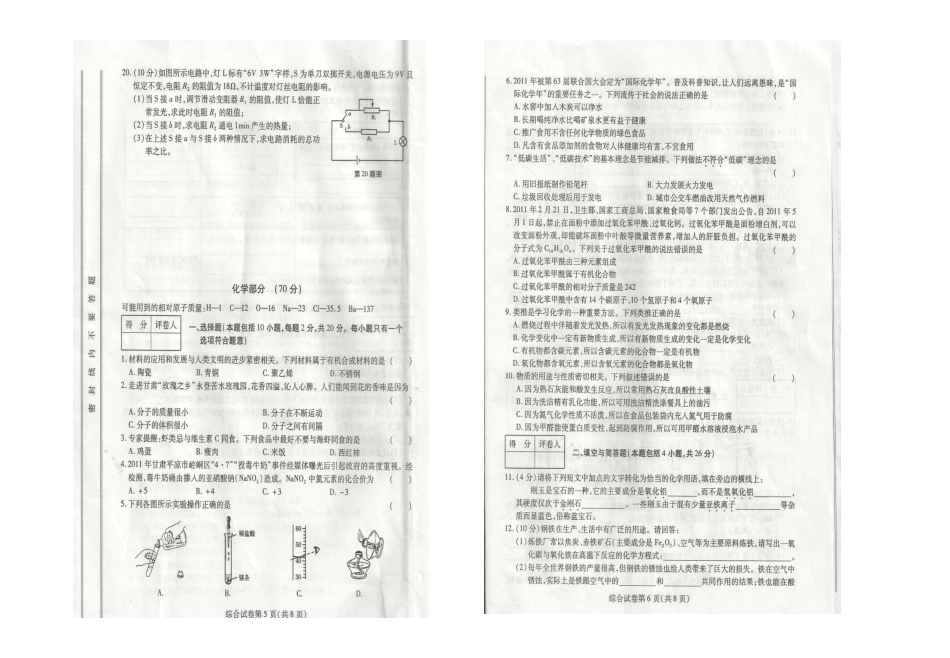 20.(10分)如图所示电路中,灯L标有“6V 3W”字样,S为单刀双掷开关,电源电压为9V且
恒定不变,电阻R₂的阻值为18Ω,不计温度对灯丝电阻的影响。
(1)当S接a时,调节滑动变阻器R₁的阻值,使灯L恰能正
常发光,求此时电阻R₁的阻值;
(2)当S接b时,求电阻R₂通电1min产生的热量;
(3)在上述S接a与S接b两种情况下,求电路消耗的总功
率之比。
a
S
b
R₁
R₂
L
第20题图
密封线内不要答题
化学部分 (70分)
可能用到的相对原子质量:H—1 C—12 O—16 Na—23 Cl—35.5 Ba—137
得 分 评卷人
一、选择题(本题包括10小题,每题2分,共20分。每小题只有一个
选项符合题意)
1.材料的应用和发展与人类文明的进步紧密相关。下列材料属于有机合成材料的是 ( )
A.陶瓷 B.青铜 C.聚乙烯 D.不锈钢
2.走进甘肃“玫瑰之乡”永登苦水玫瑰园,花香四溢,沁人心脾。人们能闻到花的香味是因为
( )
A.分子的质量很小 B.分子在不断运动
C.分子的体积很小 D.分子之间有间隔
3.专家提醒:虾类忌与维生素C同食。下列食品中最好不要与海虾同食的是 ( )
A.鸡蛋 B.瘦肉 C.米饭 D.西红柿
4.2011年甘肃平凉市崆峒区“4·7”“投毒牛奶”事件经媒体曝光后引起政府的高度重视。经
检测,毒牛奶确由掺人的亚硝酸钠(NaNO₂)造成。NaNO₂中氮元素的化合价为 ( )
A.+5 B.+4 C.+3 D.-3
5.下列各图所示实验操作正确的是 ( )
稀盐酸
镁条
60
50
40
30
A. B. C. D.
综合试卷第5页(共8页)
6.2011年被第63届联合国大会定为“国际化学年”。普及科普知识,让人们远离愚昧,是“国
际化学年”的重要任务之一。下列流传于社会的说法正确的是 ( )
A.水窖中加入木炭可以净水
B.长期喝纯净水比喝矿泉水更有益于健康
C.推广食用不含任何化学物质的绿色食品
D.凡含有食品添加剂的食物对人体健康均有害,不宜食用
7.“低碳生活”、“低碳技术”的基本理念是节能减排。下列做法不符合“低碳”理念的是
( )
A.用旧报纸制作铅笔杆 B.大力发展火力发电
C.垃圾回收处理后用于发电 D.城市公交车燃油改用天然气作燃料
8.2011年2月21日,卫生部、国家工商总局、国家粮食局等7个部门发出公告,自2011年5
月1日起,禁止在面粉中添加过氧化苯甲酰、过氧化钙。过氧化苯甲酰是面粉增白剂,可以
改变面粉外观,却能破坏面粉中叶酸等微量营养素,增加人的肝脏负担。过氧化苯甲酰的
分子式为C₁₄H₁₀O₄。下列关于过氧化苯甲酰的说法错误的是 ( )
A.过氧化苯甲酰由三种元素组成
B.过氧化苯甲酰属于有机化合物
C.过氧化苯甲酰的相对分子质量是242
D.过氧化苯甲酰中含有14个碳原子、10个氢原子和4个氧原子
9.类推是学习化学的一种重要方法。下列类推正确的是 ( )
A.燃烧过程中伴随着发光发热,所以有发光发热现象的变化都是燃烧
B.化学变化中一定有新物质生成,所以有新物质生成的变化一定是化学变化
C.有机物都含碳元素,所以含碳元素的化合物一定是有机物
D.氧化物都含氧元素,所以含氧元素的化合物都是氧化物
10.物质的用途与性质密切相关。下列叙述错误的是 ( )
A.因为熟石灰能和酸发生反应,所以常用熟石灰改良酸性土壤
B.因为洗洁精有乳化功能,所以可用洗洁精洗涤餐具上的油污
C.因为氮气化学性质不活泼,所以在食品包装袋内充入氮气用于防腐
D.因为甲醛能使蛋白质变性,起到防腐作用,所以可用甲醛水溶液浸泡水产品
得 分 评卷人
二、填空与简答题(本题包括4小题,共26分)
11.(4分)请将下列短文中加点的文字转化为恰当的化学用语,填在旁边的横线上:
刚玉是宝石的一种,它的主要成分是氧化铝______,而不是氢氧化铝______,
其硬度仅次于金刚石______。一些刚玉由于混有少量亚铁离子______等杂
质而显蓝色,俗称蓝宝石。
12.(10分)钢铁在生产、生活中有广泛的用途。请回答:
(1)炼铁厂常以焦炭、赤铁矿石(主要成分是Fe₂O₃)、空气等为主要原料炼铁,请写出一氧
化碳与氧化铁在高温下反应的化学方程式:______。
(2)每年全世界钢铁的产量很高,但钢铁的锈蚀也给人类带来了巨大的损失。铁在空气中
锈蚀,实际上是铁跟空气中的______和______共同作用的结果;铁也能在酸
综合试卷第6页(共8页)